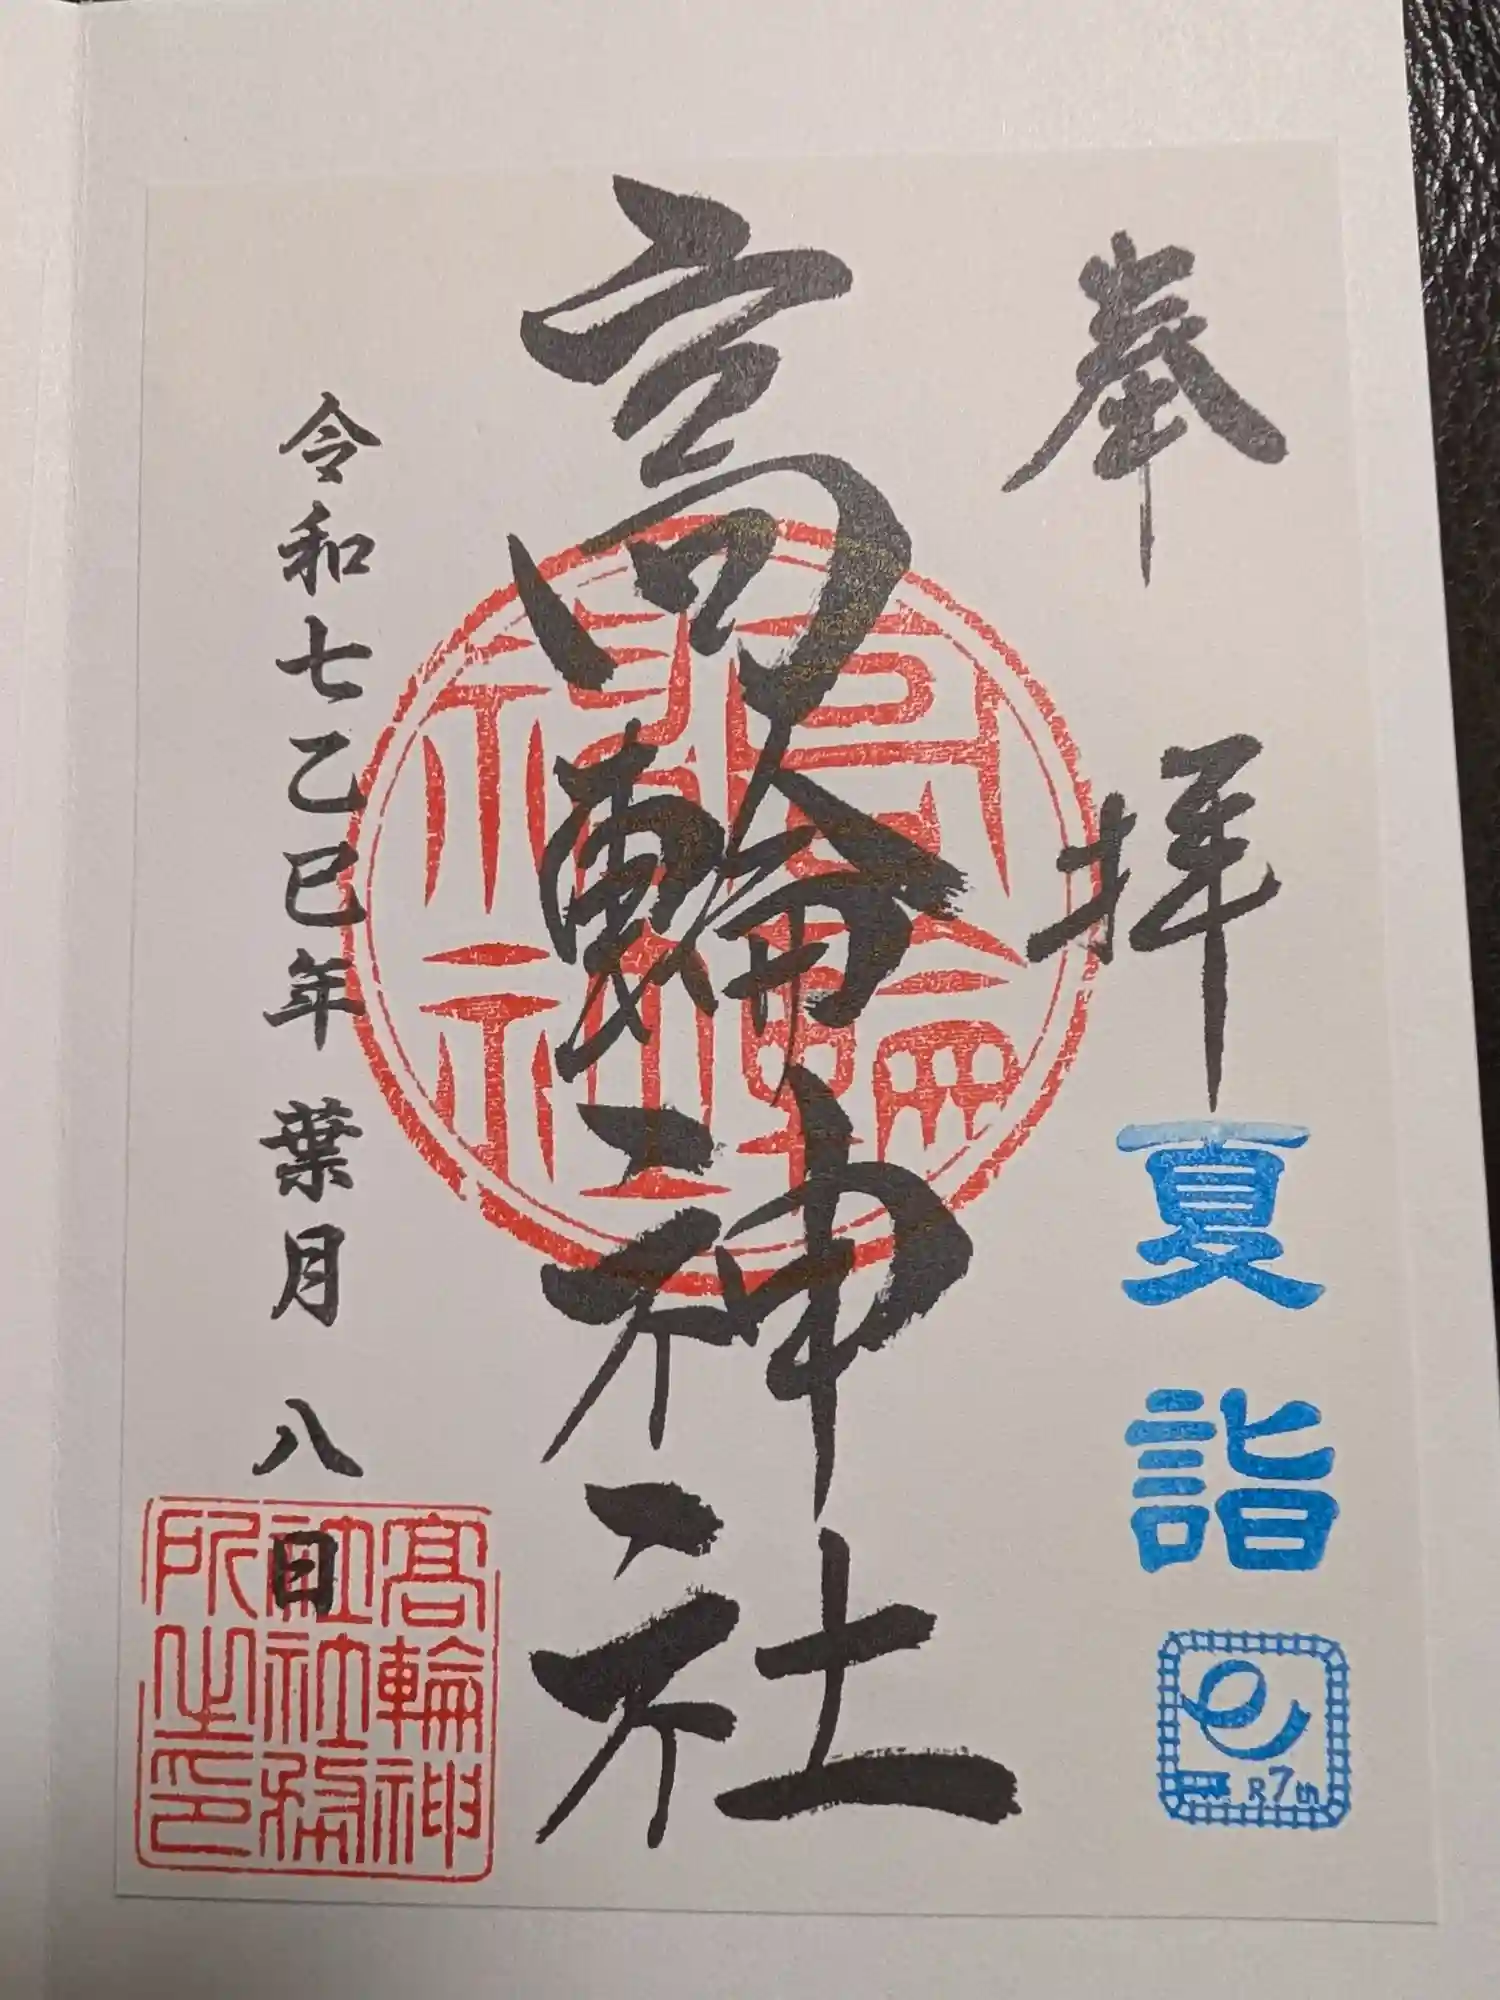 奉拝
夏詣
R7
高輪神社
高輪神
社社務
所之印
令和七乙巳年 葉月 八日